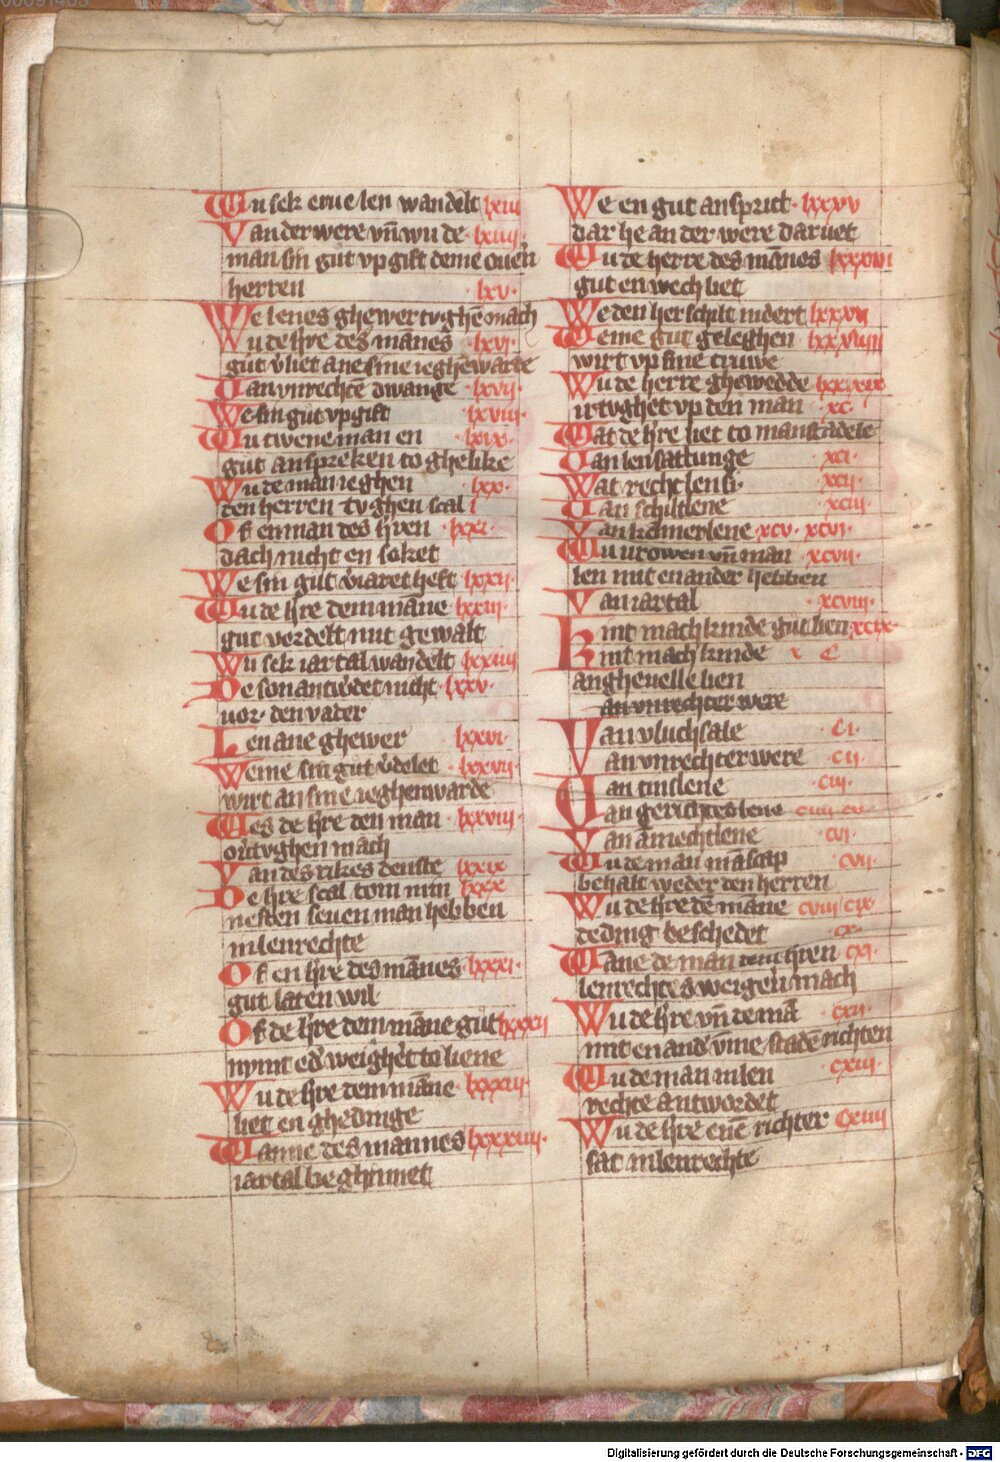 Wu sek erue len wandelt lxiii
Van der were vn̄ wu de · lxiiii ·
man sin gůt vp gift deme ouern
herren · lxv ·
We lenes ghewer tvghē mach
Wu de hr̄e des manes · lxvi ·
gůt v̓liet ane sine ieghēwarde
Van vnrechtē dwange · lxvii ·
We sin gut vp gift · lxviii ·
Wu twene man en · lxix ·
gůt anspreken to ghelike
Wu de man ieghen · lxx ·
den herren tvghen scal
Of en man des hr̄en · lxxi ·
dach nicht en soket
We sin gůt v̓iaret heft lxxii ·
Wu de hr̄e dem māne lxxiii ·
gut verdelt mit gewalt
Wu sek iartal wandelt lxxiiii
De son antw̓det nicht · lxxv ·
vor · den vader
Len ane ghewer lxxvi ·
Weme sin gut v̓delet · lxxvii ·
wirt an sine ieghenwarde
Wes de hr̄e den man · lxxviii ·
ouͤtvghen mach
Van des rikes denste lxxix
De hr̄e scal tom min lxxx
nesten seuen man hebben
in lenrechte
Of en hr̄e des mānes · lxxxi ·
gut laten wil
Of de hr̄e dem māne gůt lxxxii
nymt ed̓ weigh̓et to liene
Wu de hr̄e dem māne · lxxxiii ·
liet en ghedinge
Wanne des mannes lxxxiiii ·
iartal beghinnet
We en gut ansprict · lxxxv
dar he an der were daruet
Wu de herre des mānes lxxxvi
gut en wech liet
We den herschilt nidert lxxxvii
Weme gut geleghen lxxxviii
wirt vp sine truwe
Wu de herre ghewedde lxxxix
irtvghet vp den man · xc ·
Wat de hr̄e liet to manstadele
Van lensattunge · xci ·
Wat recht len si · xcii ·
Van schiltlene · xciii ·
Van kāmerlene xcv · xcvi ·
Wu vrowen vn̄ man · xcvii ·
len mit enander hebben
Van iartal · xcviii ·
Kint mach kinde gůt lien xcix ·
Kint mach kinde x c
angheuelle lien
an vnrechter were
Van vluchsale · ci ·
Van vnrechter were · cii ·
Van tinslene · ciii ·
Van gerichtes lene · ciiii cv ·
Van āmechtlene · cvi ·
Wu de man mascap · cvii ·
behalt weder den herren
Wu de hr̄e dē māne cviii cix
deding beschedet · cx ·
Wāne de man dem hr̄en cxi ·
lenrechtes weigeͤn mach
Wu de hr̄e vn̄ de mā · cxii ·
mit enand̓ vme stadē richten
Wu de man in len cxiii ·
rechte antwordet
Wu de hr̄e enē richter cxiiii
sat in lenrechte
Digitalisierung gefördert durch die Deutsche Forschungsgemeinschaft - DFG